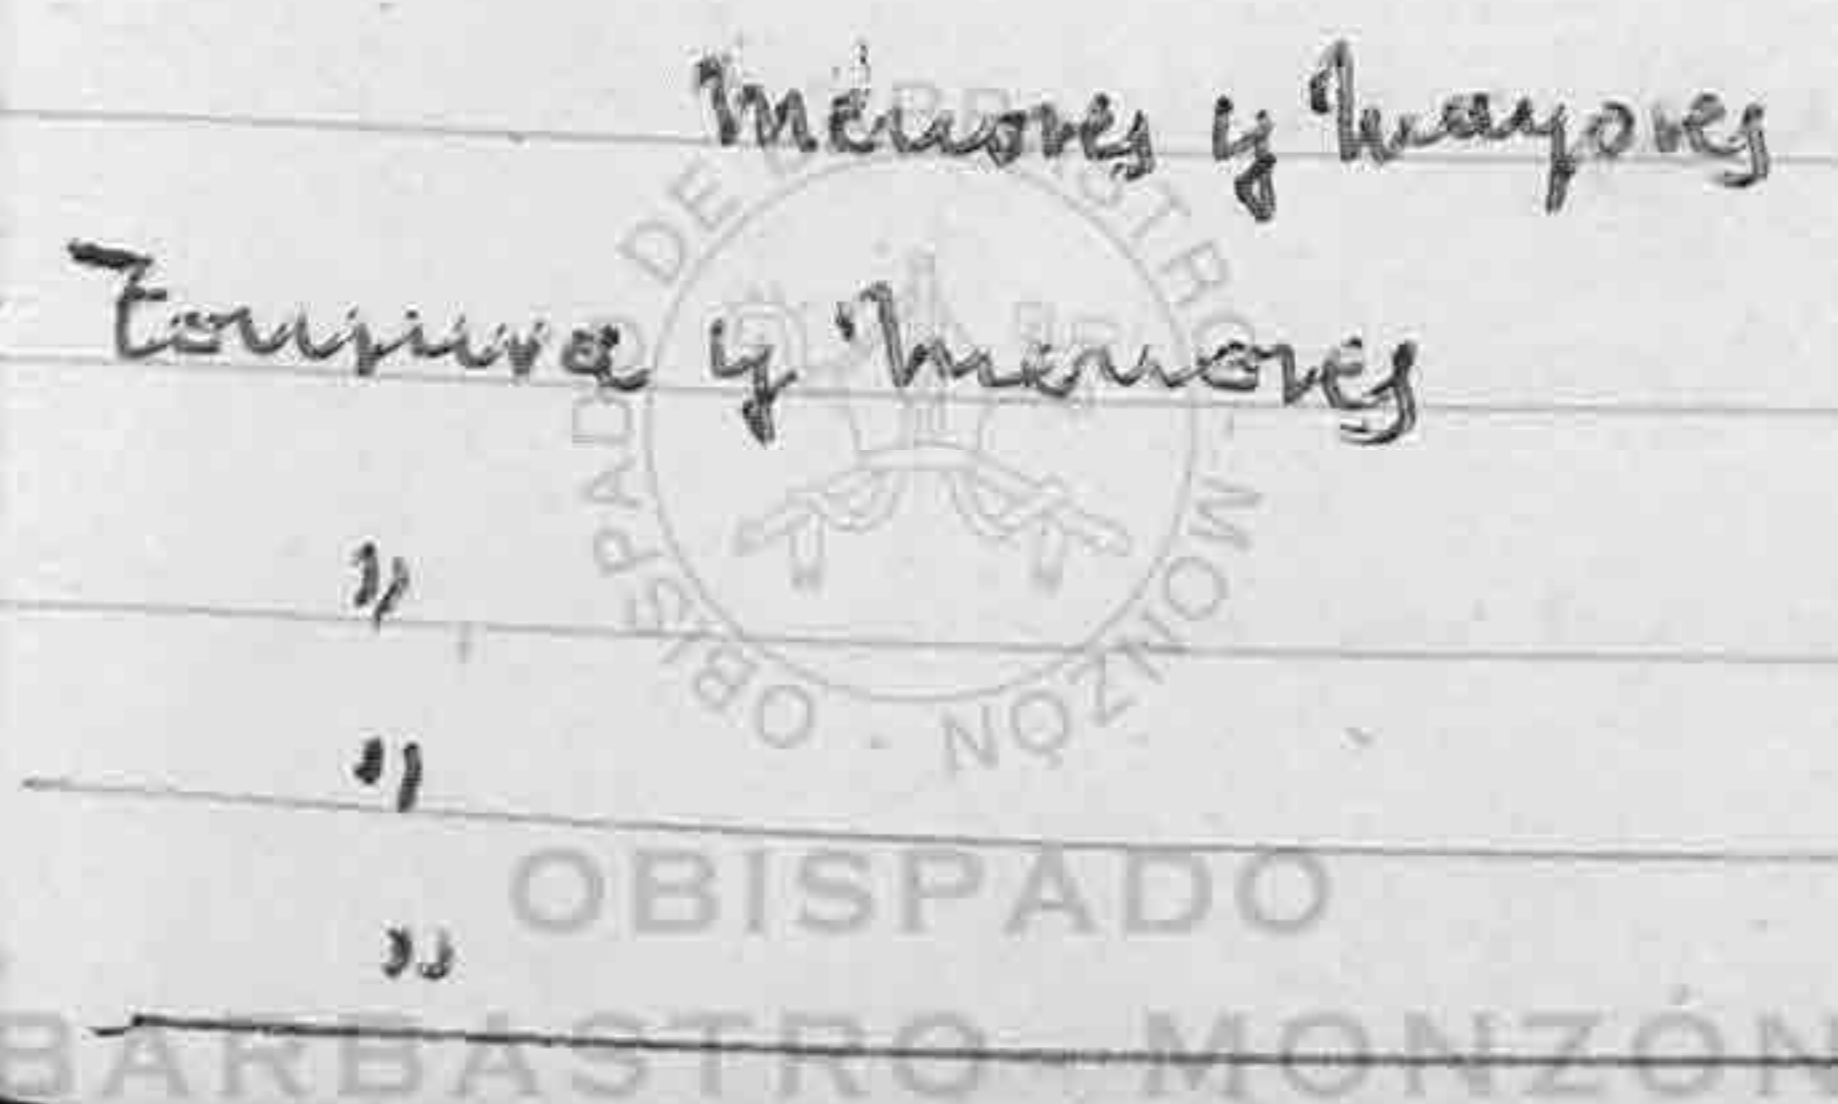 Menores y Mayores
Tonsura y Menores
"
"
"
OBISPADO DE BARBASTRO - MONZÓN
OBISPADO
BARBASTRO MONZÓN